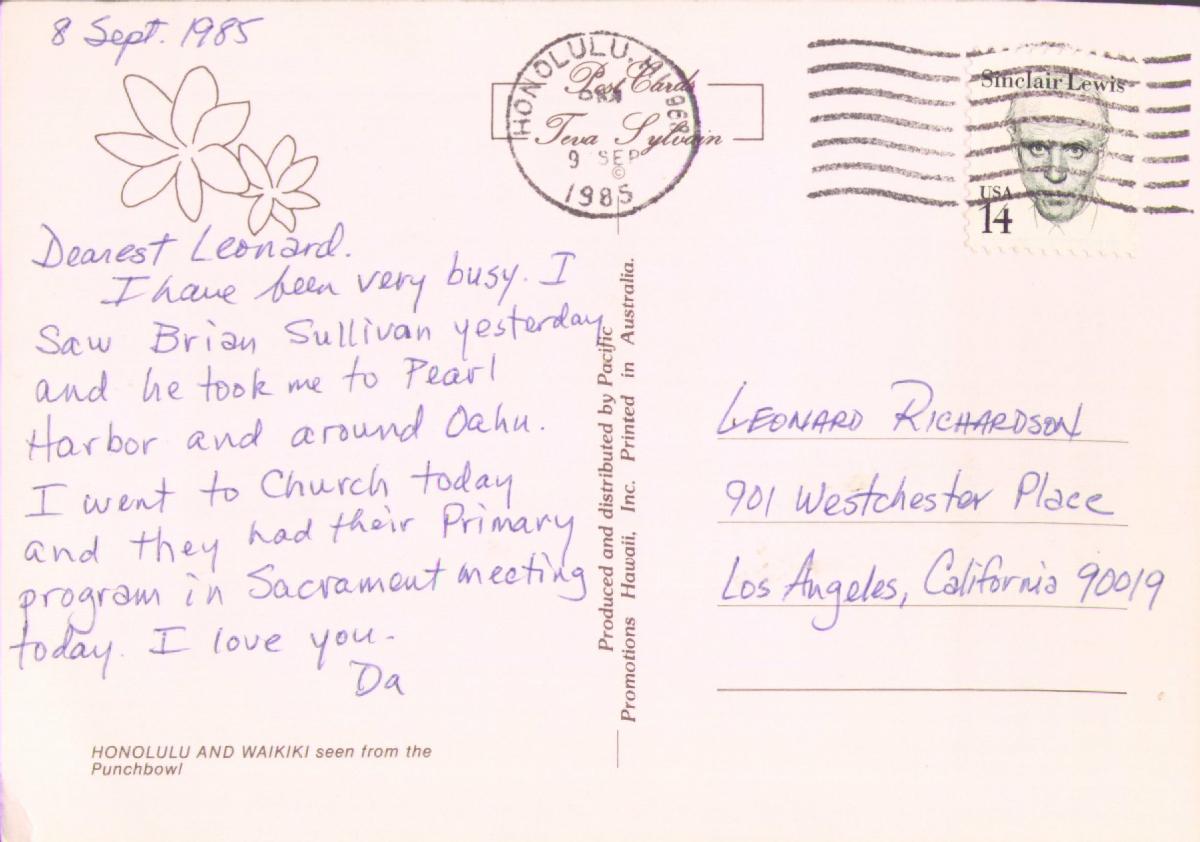 8 Sept. 1985
Dearest Leonard.
I have been very busy. I
Saw Brian Sullivan yesterday
and he took me to Pearl
Harbor and around Oahu.
I went to Church today
and they had their Primary
program in Sacrament meeting
today. I love you.
Da
HONOLULU AND WAIKIKI seen from the
Punchbowl
Post Cards
Teva Sylvain
©
HONOLULU, HI
9 SEP
1985
Produced and distributed by Pacific
Promotions Hawaii, Inc. Printed in Australia.
Sinclair Lewis
USA
14
LEONARD RICHARDSON
901 Westchester Place
Los Angeles, California 90019